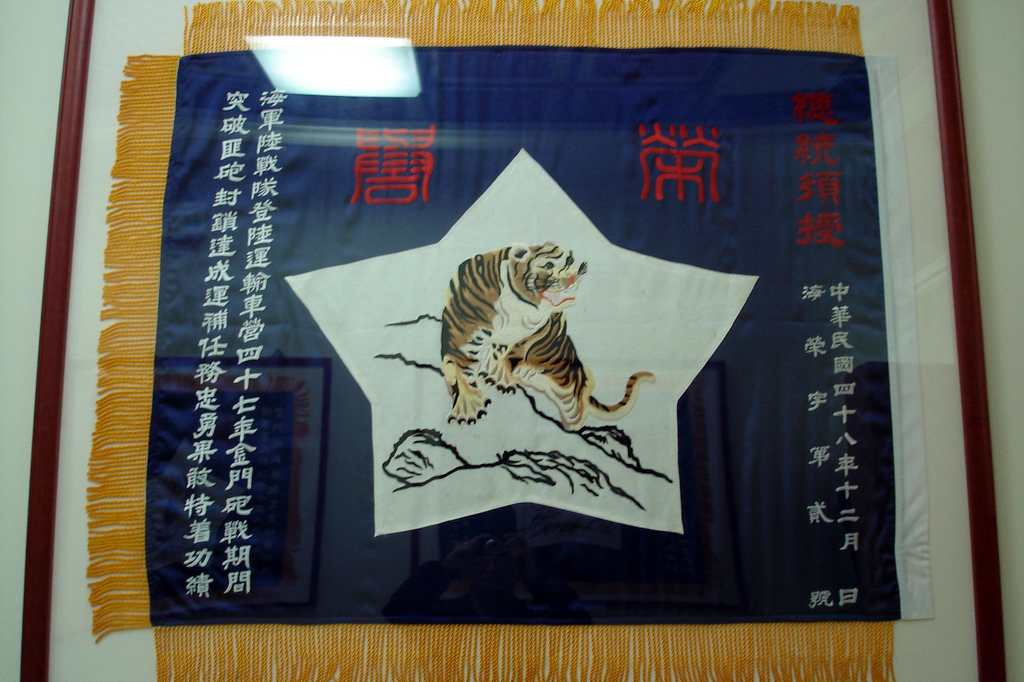 總統頒授
中華民國四十八年十二月 日
海榮字第貳號
榮譽
海軍陸戰隊登陸運輸車營四十七年金門砲戰期間
突破匪砲封鎖達成運補任務忠勇果敢特著功績